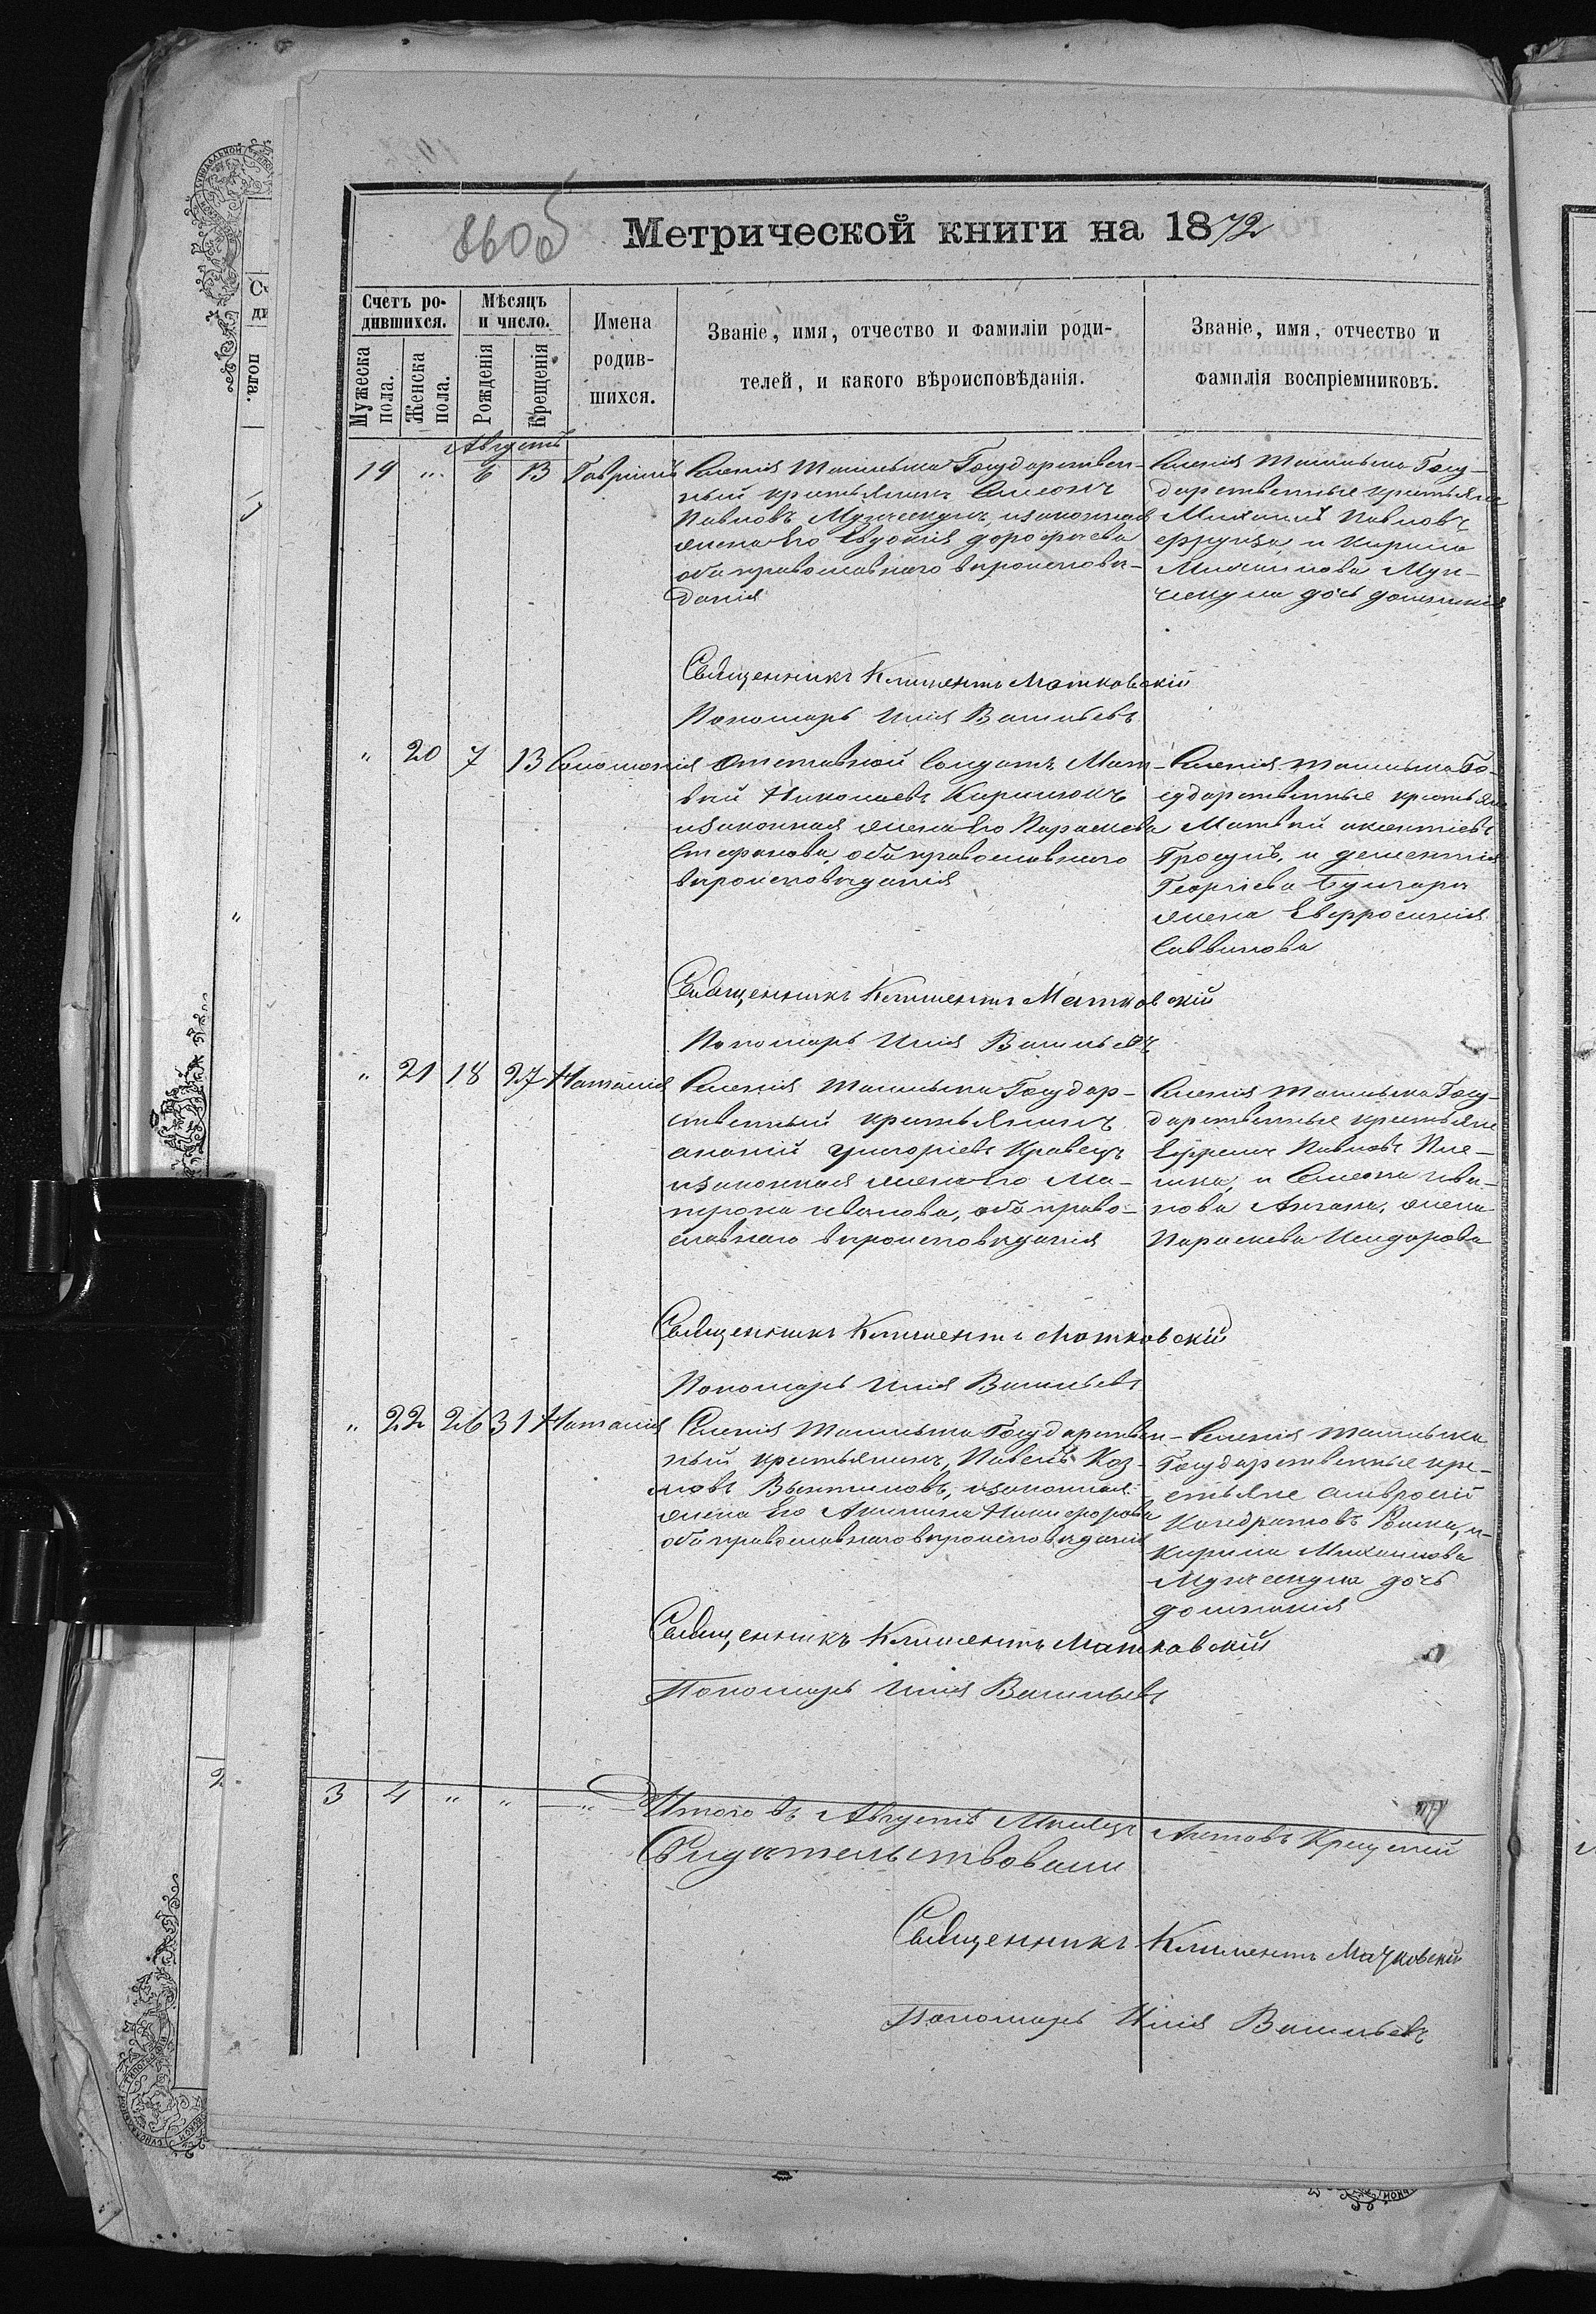 860об
Метрической книги на 1872
Счетъ ро-
дившихся.
Мѣсяцъ
и число.
Мужеска
пола.
Женска
пола.
Рожденія
Крещенія
Имена
родив-
шихся.
Званіе, имя, отчество и фамиліи роди-
телей, и какого вѣроисповѣданія.
Званіе, имя, отчество и
фамилія воспріемниковъ.
Августъ
19 " 6 13 Гавріилъ
Селенія Государствен-
ный крестьянинъ Симеонъ
Павловъ законная
жена Его Евдокія Дорофѣева
оба православнаго вѣроисповѣ-
данія
Селенія Госу-
дарственные крестьяне
Михаилъ Павловъ
и Кирила
Михаилова
дочь
Священникъ Климентъ Матковскій
Пономарь Илія Васильевъ
" 20 7 13 Соломонія
Отставной Солдатъ Мат-
вѣй Николаевъ Кирилюкъ
изаконная жена Его Параскева
Стефанова, оба православнаго
вѣроисповѣданія
Селенія Го-
сударственные крестьяне
Матвѣй
и
Георгіева Булгара
жена Евфросинія
Саввинова
Священникъ Климентъ Матковскій
Пономарь Илія Васильевъ
" 21 18 27 Наталія
Селенія Государ-
ственный крестьянинъ
Григоріевъ Кравецъ
изаконная жена Его Ма-
трона Иванова, оба право-
славнаго вѣроисповѣданія
Селенія Госу-
дарственные крестьяне
Ефремъ Павловъ
и Симеона Ива-
нова жена
Параскева Исидорова
Священникъ Климентъ Матковскій
Пономарь Илія Васильевъ
" 22 26 31 Наталія
Селенія Государствен-
ный крестьянинъ, Павелъ Коз-
мовъ изаконная
жена Его Акилина Никифорова
оба православнаго вѣроисповѣданія
Селенія
Государственные кре-
стьяне Амвросій
Кондратовъ и
Кирила Михаилова
дочь
Священникъ Климентъ Матковскій
Пономарь Илія Васильевъ
3 4 " " "
Итого въ Августѣ Мѣсяцѣ Актовъ Крещеній
Свидѣтельствовали
Священникъ Климентъ Матковскій
Пономарь Илія Васильевъ